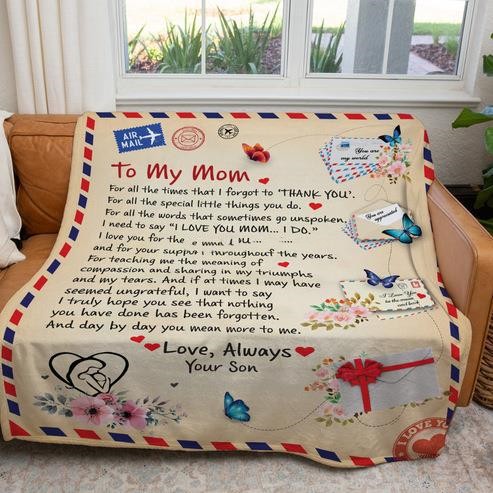 AIR
MAIL
To My Mom
For all the times that I forgot to "THANK YOU".
For all the special little things you do.
For all the words that sometimes go unspoken.
I need to say "I LOVE YOU MOM... I DO."
I love you for the
and for your throughout the years.
For teaching me the meaning of
compassion and sharing in my triumphs
and my tears. And if at times I may have
seemed ungrateful, I want to say
I truly hope you see that nothing
you have done has been forgotten.
And day by day you mean more to me.
Love, Always
Your Son
You are
my world
You are appreciated
I Love You
to the moon
and back
I LOVE YOU